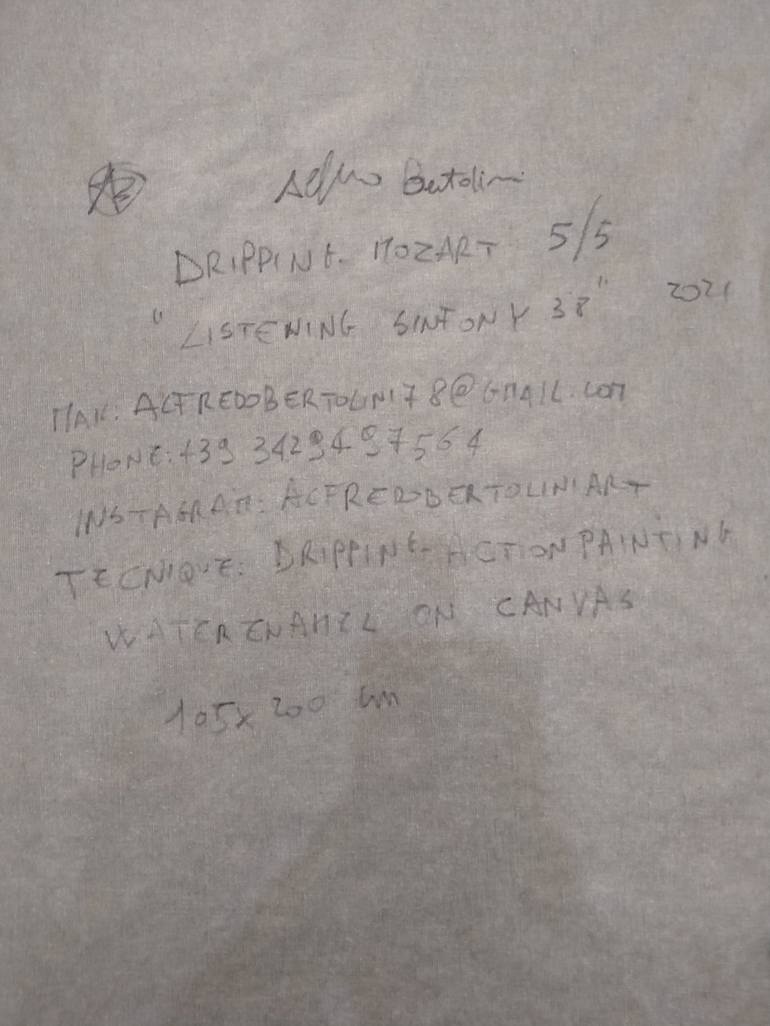 AB Alfredo Bertolini
DRIPPING MOZART 5/5
"LISTENING SINFONY 38" 2021
MAIL: ALFREDOBERTOLINI78@GMAIL.COM
PHONE: +39 3429497564
INSTAGRAM: ALFREDOBERTOLINIART
TECNIQUE: DRIPPING-ACTION PAINTING
WATER ENAMEL ON CANVAS
105x200 cm